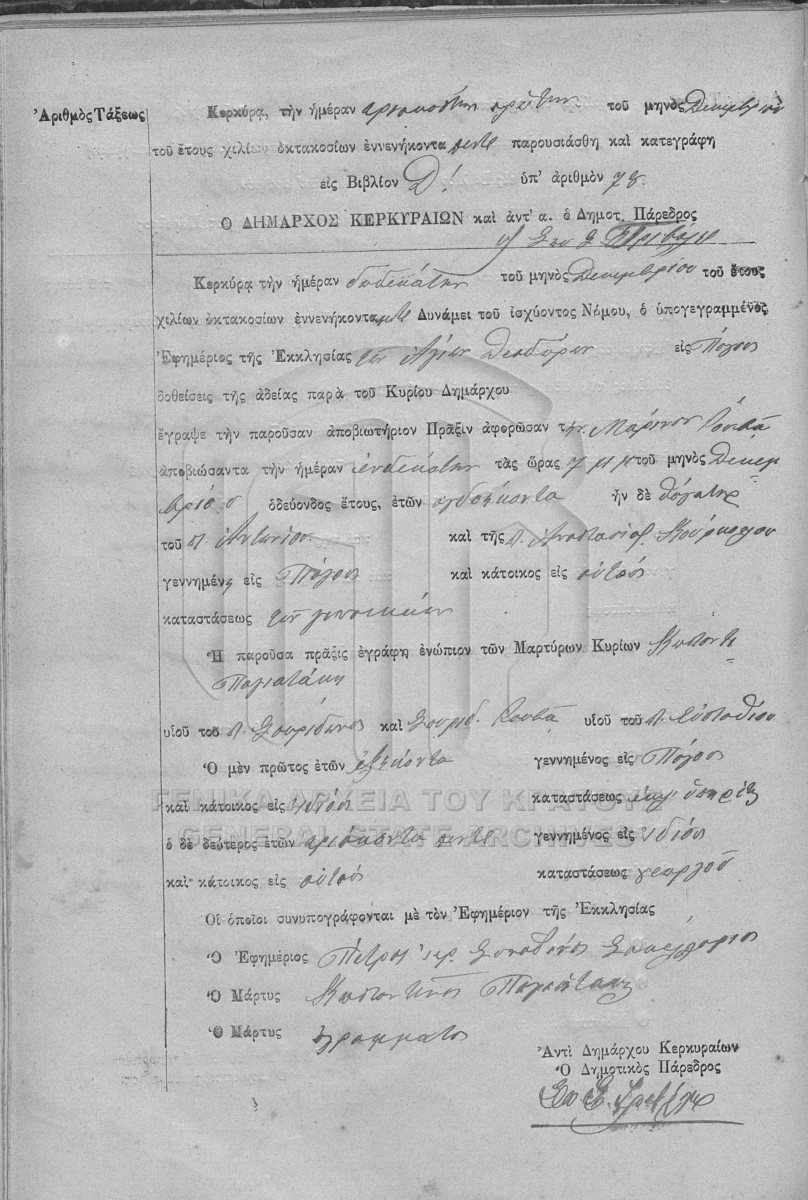 Ἀριθμὸς Τάξεως
Κερκύρᾳ, τὴν ἡμέραν τριακοστὴν πρώτην τοῦ μηνὸς Δεκεμβρίου
τοῦ ἔτους χιλίων ὀκτακοσίων ἐννενήκοντα πέντε παρουσιάσθη καὶ κατεγράφη
εἰς Βιβλίον Δ! ὑπ' ἀριθμὸν 78.
Ὁ ΔΗΜΑΡΧΟΣ ΚΕΡΚΥΡΑΙΩΝ καὶ ἀντ' α. ὁ Δημοτ. Πάρεδρος
Κερκύρᾳ τὴν ἡμέραν δωδεκάτην τοῦ μηνὸς Δεκεμβρίου τοῦ ἔτους
χιλίων ὀκτακοσίων ἐννενήκοντα πέντε Δυνάμει τοῦ ἰσχύοντος Νόμου, ὁ ὑπογεγραμμένος
Ἐφημέριος τῆς Ἐκκλησίας τῶν Ἁγίων Θεοδώρων εἰς
δοθείσεις τῆς ἀδείας παρὰ τοῦ Κυρίου Δημάρχου
ἔγραψε τὴν παροῦσαν ἀποβιωτήριον Πρᾶξιν ἀφορῶσαν τὴν
ἀποβιώσαντα τὴν ἡμέραν ἑνδεκάτην τὰς ὥρας 7 μ μ τοῦ μηνὸς Δεκεμ
βρίου ὁδεύονδος ἔτους, ἐτῶν ὀγδοήκοντα ἦν δὲ θυγάτηρ
τοῦ π. Ἀντωνίου καὶ τῆς π. Ἀναστασίας
γεννημένη εἰς καὶ κάτοικος εἰς αὐτοῦ
καταστάσεως τῶν γυναικείων
Ἡ παροῦσα πρᾶξις ἐγράφη ἐνώπιον τῶν Μαρτύρων Κυρίων Κωσταντῆ
υἱοῦ τοῦ π. Σπυρίδωνος καὶ Σπυρίδ. υἱοῦ τοῦ π. Εὐσταθίου
Ὁ μὲν πρῶτος ἐτῶν ἑξήκοντα γεννημένος εἰς
καὶ κάτοικος εἰς αὐτοῦ καταστάσεως
ΓΕΝΙΚΑ ΑΡΧΕΙΑ ΤΟΥ ΚΡΑΤΟΥΣ
GENERAL STATE ARCHIVES
ὁ δὲ δεύτερος ἐτῶν τριάκοντα πέντε γεννημένος εἰς
καὶ κάτοικος εἰς αὐτοῦ καταστάσεως γεωργοῦ
Οἱ ὁποῖοι συνυπογράφονται μὲ τὸν Ἐφημέριον τῆς Ἐκκλησίας
Ὁ Ἐφημέριος Πέτρος ἱερ.
Ὁ Μάρτυς Κωσταντῖνος
Ὁ Μάρτυς ἀγράμματος
Ἀντὶ Δημάρχου Κερκυραίων
Ὁ Δημοτικὸς Πάρεδρος